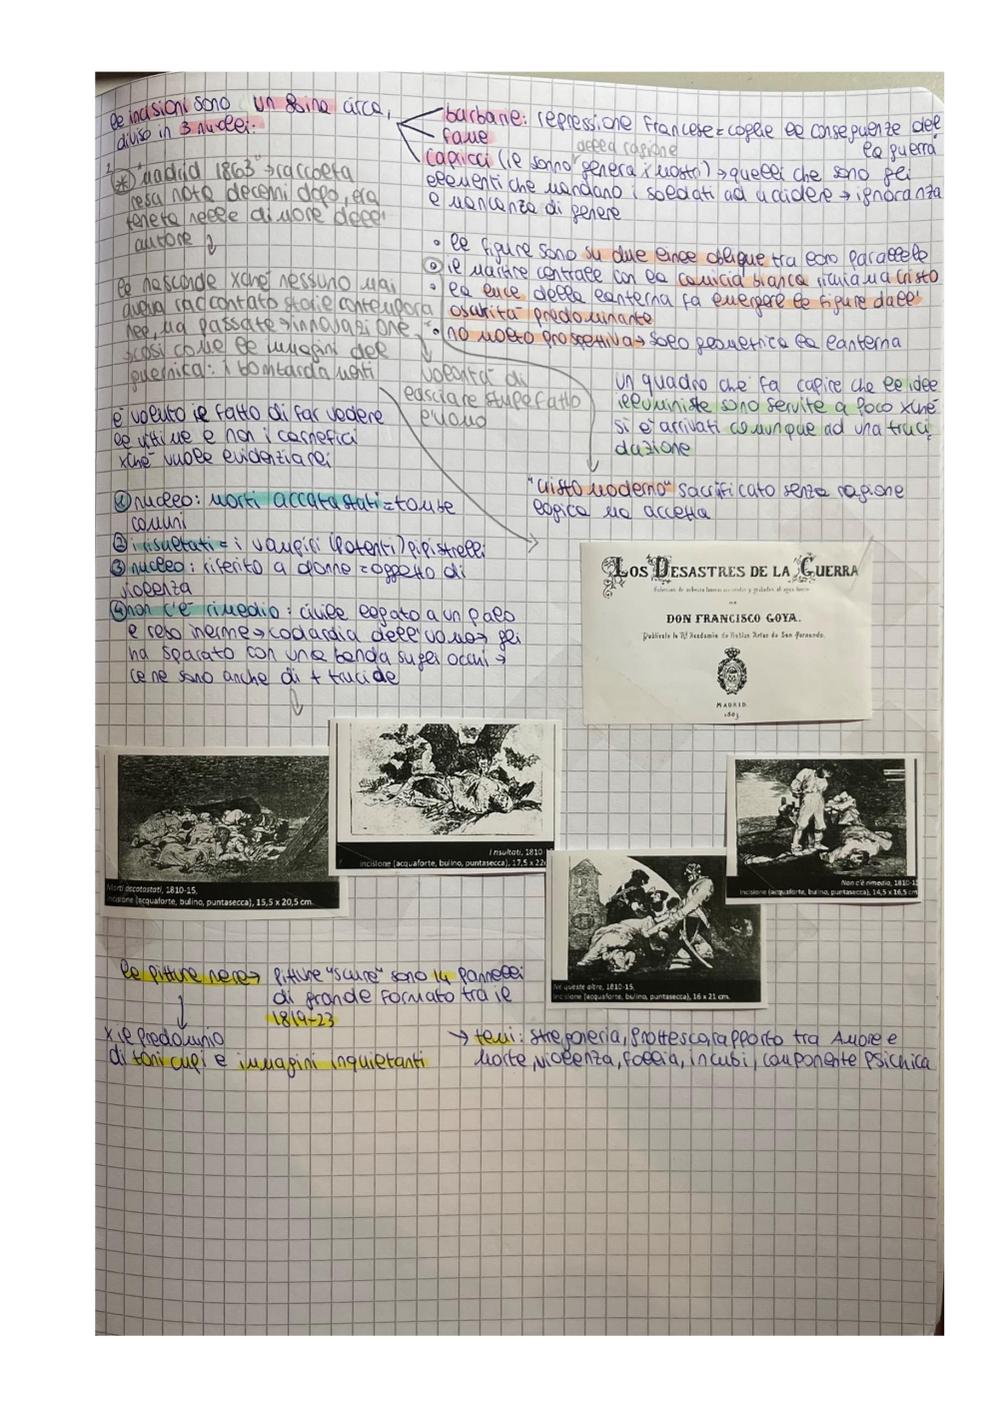 le incisioni sono un 80ina circa,
diviso in 3 nuclei:
barbarie: repressione francese = coglie le conseguenze del
la guerra
fame
della ragione
capricci (il sonno genera i mostri) → quelli che sono gli
elementi che mandano i soldati ad uccidere → ignoranza
e mancanza di genere
* "Madrid 1863" → raccolta
resa nota decenni dopo, era
tenuta nelle dimore dell'
autore
le nasconde xché nessuno mai
aveva raccontato storie contempora
nee, ma passate → innovazione
così come le immagini del
guernica: i bombardamenti
volontà di
lasciare stupefatto
l'uomo
• le figure sono su due linee oblique tra loro parallele
• il martire centrale con la camicia bianca richiama Cristo
• la luce della lanterna fa emergere le figure dall'
oscurità predominante
• no molto prospettiva → solo geometrica la lanterna
un quadro che fa capire che le idee
illuministe sono servite a poco xché
si è arrivati comunque ad una truci
dazione
è voluto il fatto di far vedere
le vittime e non i carnefici
xché vuole evidenziarci
"Cristo moderno" sacrificato senza ragione
logica ma accetta
① nucleo: morti accatastati = tombe
comuni
② i risultati = i vampiri (potenti) pipistrelli
③ nucleo: riferito a donne = oggetto di
violenza
④ non c'è rimedio: civile legato a un palo
e reso inerme → codardia dell'uomo → gli
ha sparato con una benda sugli occhi →
ce ne sono anche di + trucide
LOS DESASTRES DE LA GUERRA
POR
DON FRANCISCO GOYA.
Publícala la Rl Academia de Nobles Artes de San Fernando.
MADRID
1863
Morti accatastati, 1810-15,
incisione (acquaforte, bulino, puntasecca), 15,5 x 20,5 cm.
I risultati, 1810-
incisione (acquaforte, bulino, puntasecca), 17,5 x 22
Non c'è rimedio, 1810-1
incisione (acquaforte, bulino, puntasecca), 14,5 x 16,5 cm
Né queste altre, 1810-15,
incisione (acquaforte, bulino, puntasecca), 16 x 21 cm.
le pitture nere → pitture "scure" sono 14 pannelli
di grande formato tra il
1819-23
x il predominio
di toni cupi e immagini inquietanti
→ temi: stregoneria, grottesco, rapporto tra Amore e
Morte, violenza, follia, incubi, componente psichica